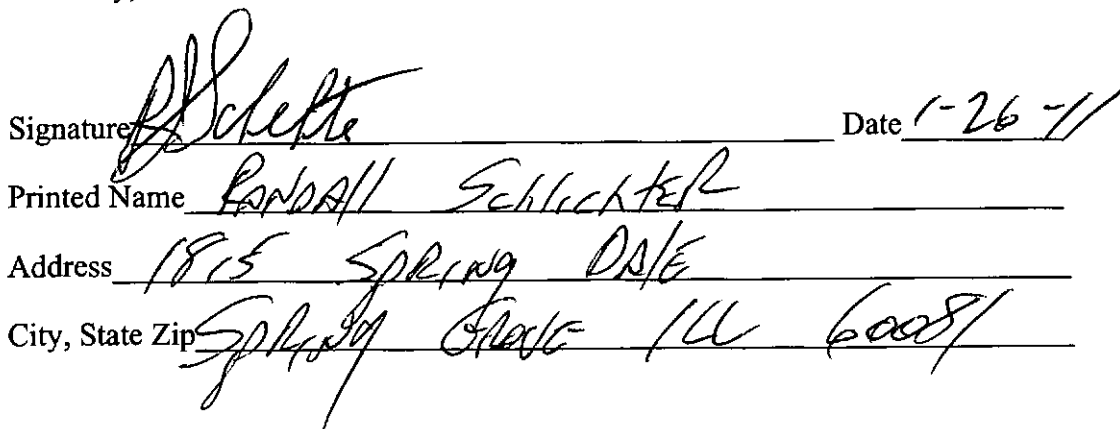 Signature Date 1-26-11
Printed Name RANDAll SchlichtER
Address 1815 SPRING DAlE
City, State Zip SPRING GROVE Ill 60081